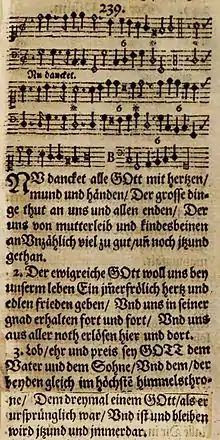 239.
Nu dancket.
6
6
6
B
NUn dancket alle GOtt mit hertzen/
mund und händen/ Der grosse din-
ge thut an uns und allen enden/ Der
uns von mutterleib und kindesbeinen
an Unzählich viel zu gut/ uñ noch jtzund
gethan.
2. Der ewigreiche GOtt woll uns bey
unserm leben Ein jm̃erfrölich hertz und
edlen frieden geben/ Und uns in seiner
gnad erhalten fort und fort/ Und uns
aus aller noth erlösen hier und dort.
3. Lob/ehr und preis sey GOTT dem
Vater und dem Sohne/ Und dem/der
beyden gleich im höchstẽ himmelsthro-
ne/ Dem dreymal einem Gott/als er
ursprünglich war/ Und ist und bleiben
wird jtzund und immerdar.